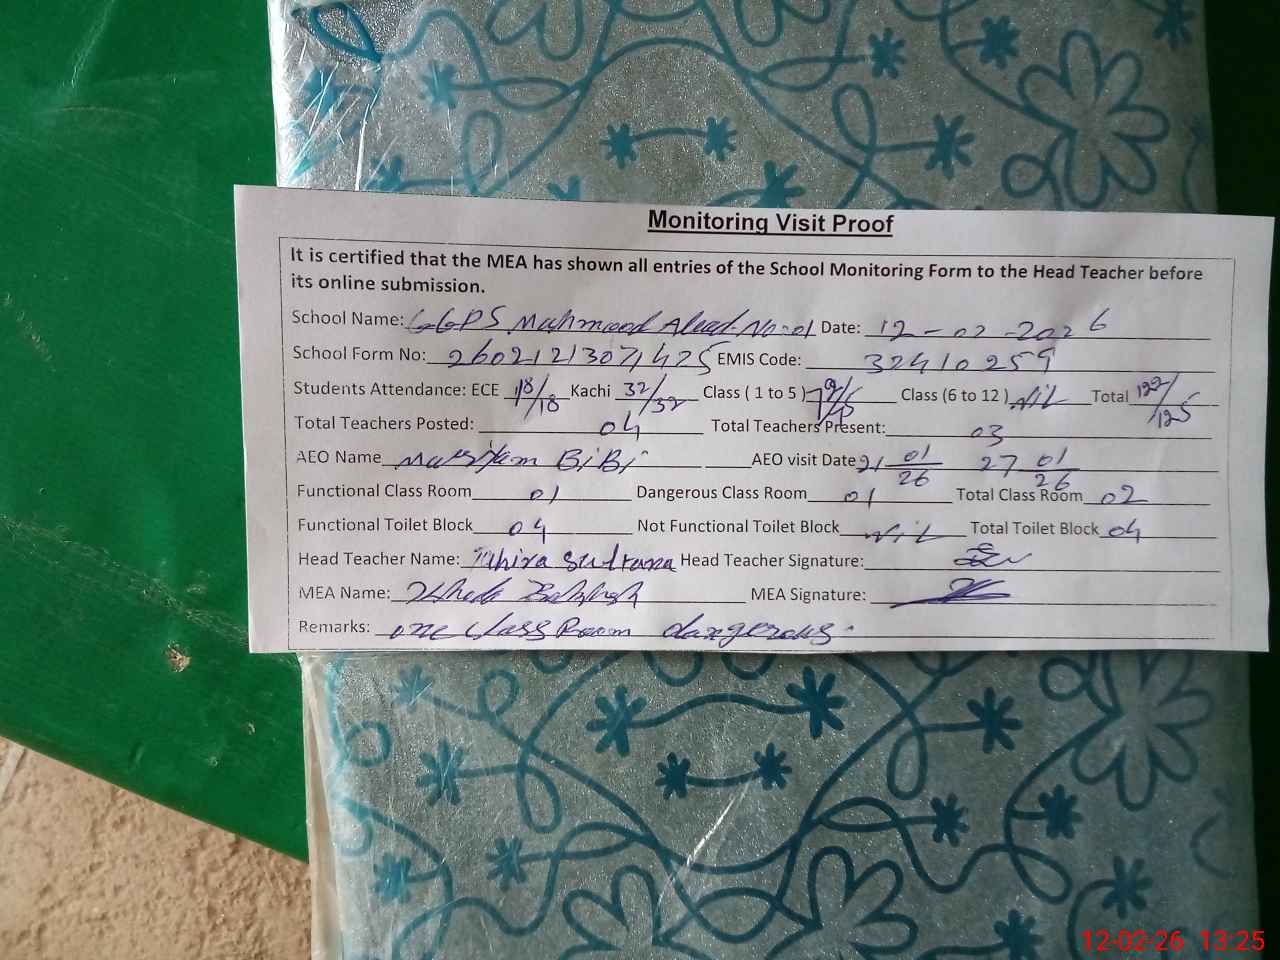 Monitoring Visit Proof
It is certified that the MEA has shown all entries of the School Monitoring Form to the Head Teacher before
its online submission.
School Name: GGPS Mahmood Abad No-01 Date: 12-02-2026
School Form No: 26021213071425 EMIS Code: 32410259
Students Attendance: ECE 18/18 Kachi 32/32 Class ( 1 to 5 ) Class (6 to 12 ) Nil Total 122/125
Total Teachers Posted: 04 Total Teachers Present: 03
AEO Name BiBi AEO visit Date 21 01/26 27 01/26
Functional Class Room 01 Dangerous Class Room 01 Total Class Room 02
Functional Toilet Block 04 Not Functional Toilet Block Nil Total Toilet Block 04
Head Teacher Name: Sultana Head Teacher Signature:
MEA Name: MEA Signature:
Remarks: one class Room dangerous.
12-02-26 13:25